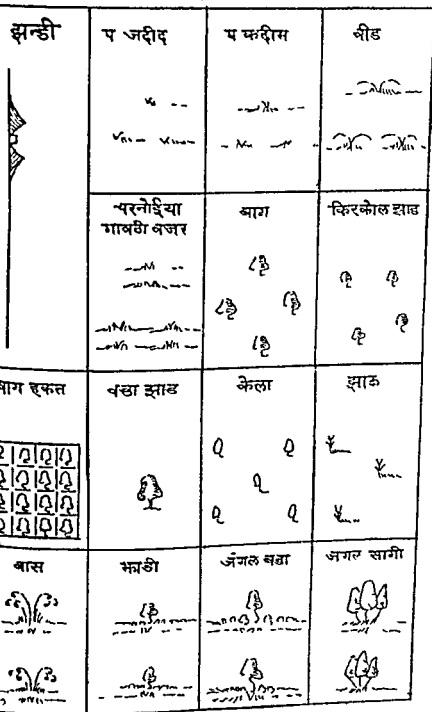 झन्डी
प जदीद
प कदीम
बीड
चरनोईया
गावठी बजर
बाग
किरकोल झाड
बाग हकत
वडा झाड
केला
झाऊ
बास
झाडी
जंगल बडा
जगल सागी